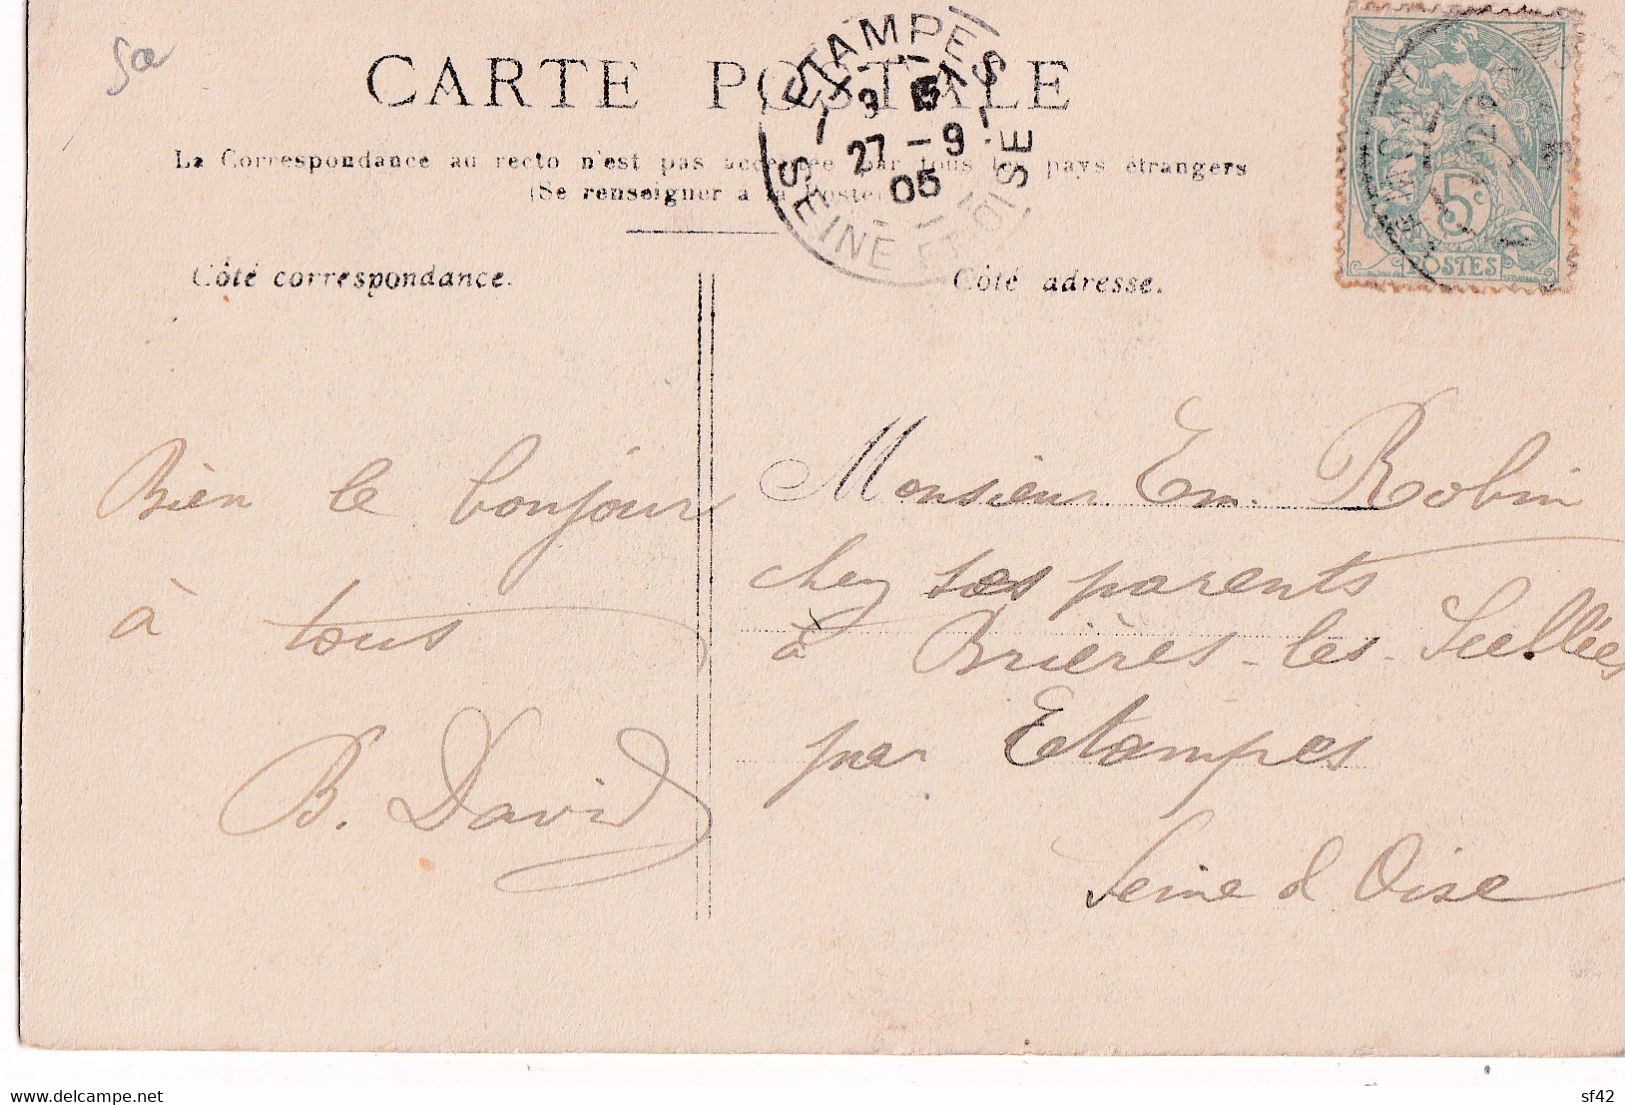 5e
CARTE POSTALE
La Correspondance au recto n'est pas acceptée par tous les pays étrangers
(Se renseigner a la Poste)
ETAMPES
27 - 9
05
SEINE ET OISE
5c
POSTES
Côté correspondance.
Côté adresse.
Bien le bonjour
à tous
B. David
Monsieur Em. Robin
chez ses parents
à Brières-les-Scellées
par Etampes
Seine & Oise
www.delcampe.net
sf42